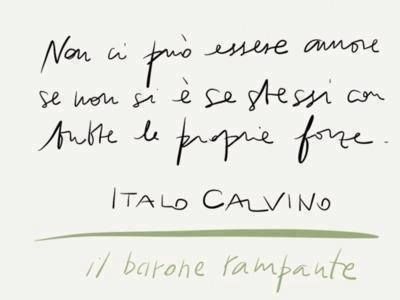 Non ci può essere amore
se non si è se stessi con
tutte le proprie forze.
ITALO CALVINO
il barone rampante